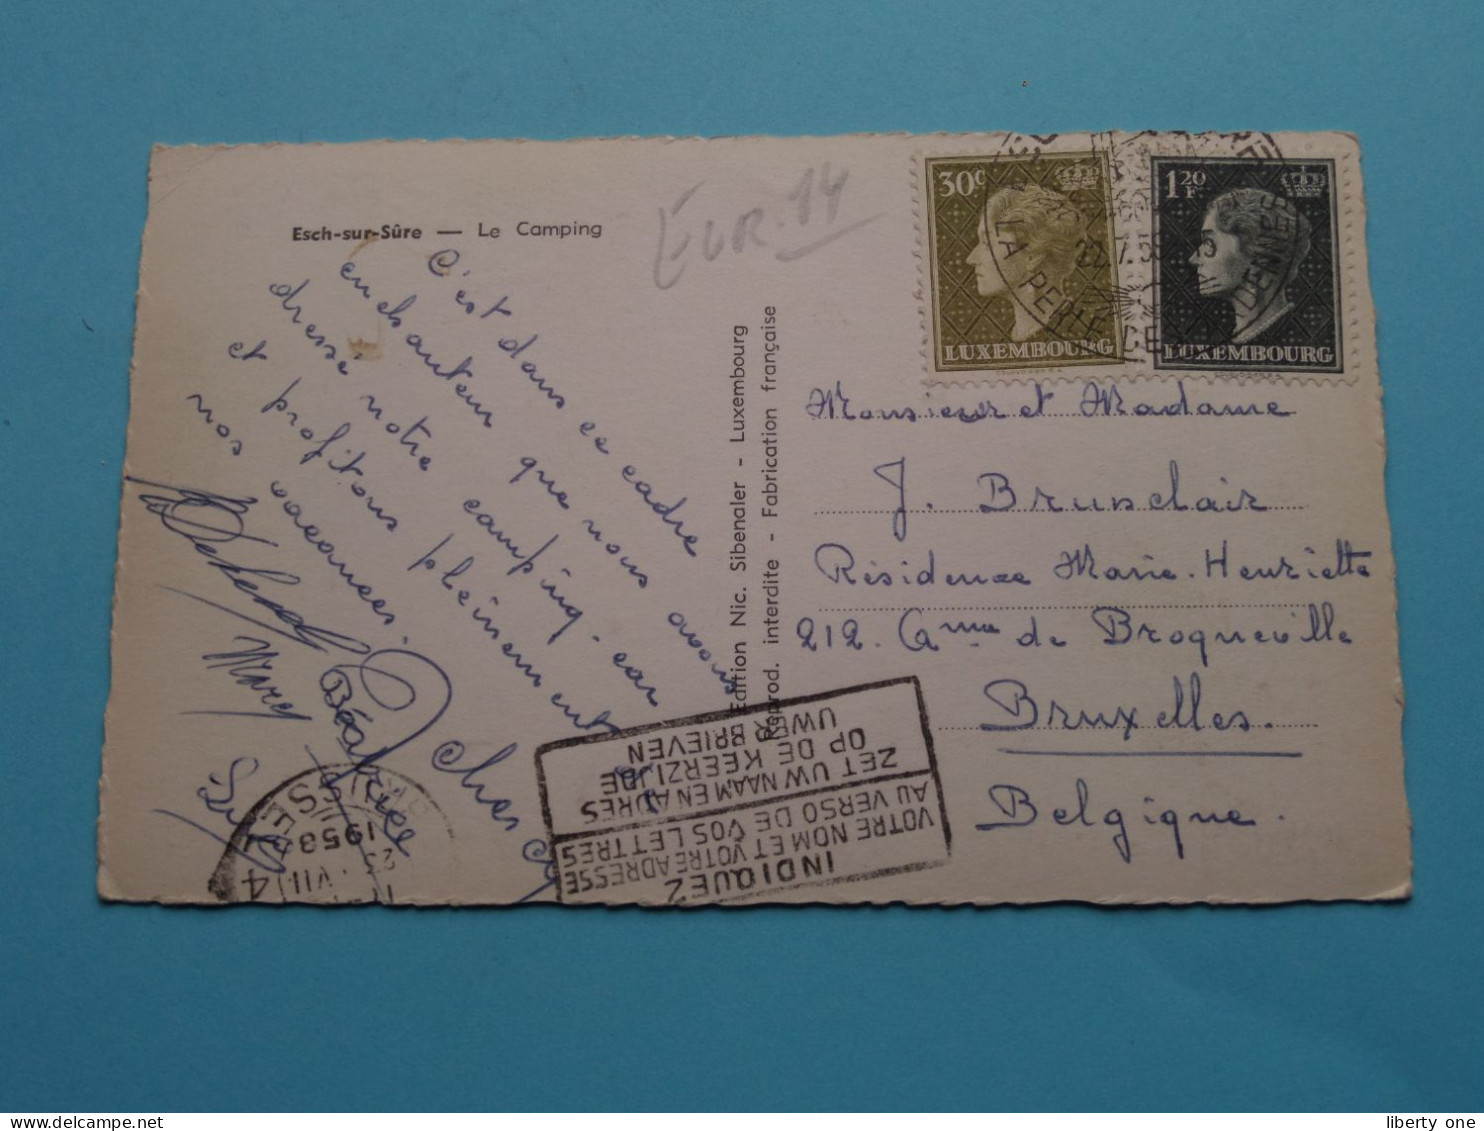 Esch-sur-Sûre — Le Camping
EUR. 14
C'est dans ce cadre
enchanteur que nous avons
dressé notre camping. car
et profitons pleinement
nos vacances.
Mary
Béatrice
Edition Nic. Sibenaler - Luxembourg
Reprod. interdite - Fabrication française
30c
LUXEMBOURG
1 20 F
LUXEMBOURG
22.7.58
LA PERLE DES ARDENNES
Monsieur et Madame
J. Brusclair
Résidence Marie-Henriette
212. Gme de Broqueville
Bruxelles.
Belgique.
INDIQUEZ
VOTRE NOM ET VOTRE ADRESSE
AU VERSO DE VOS LETTRES
ZET UW NAAM EN ADRES
OP DE KEERZIJDE
UWER BRIEVEN
1958
23
VII
14
liberty one